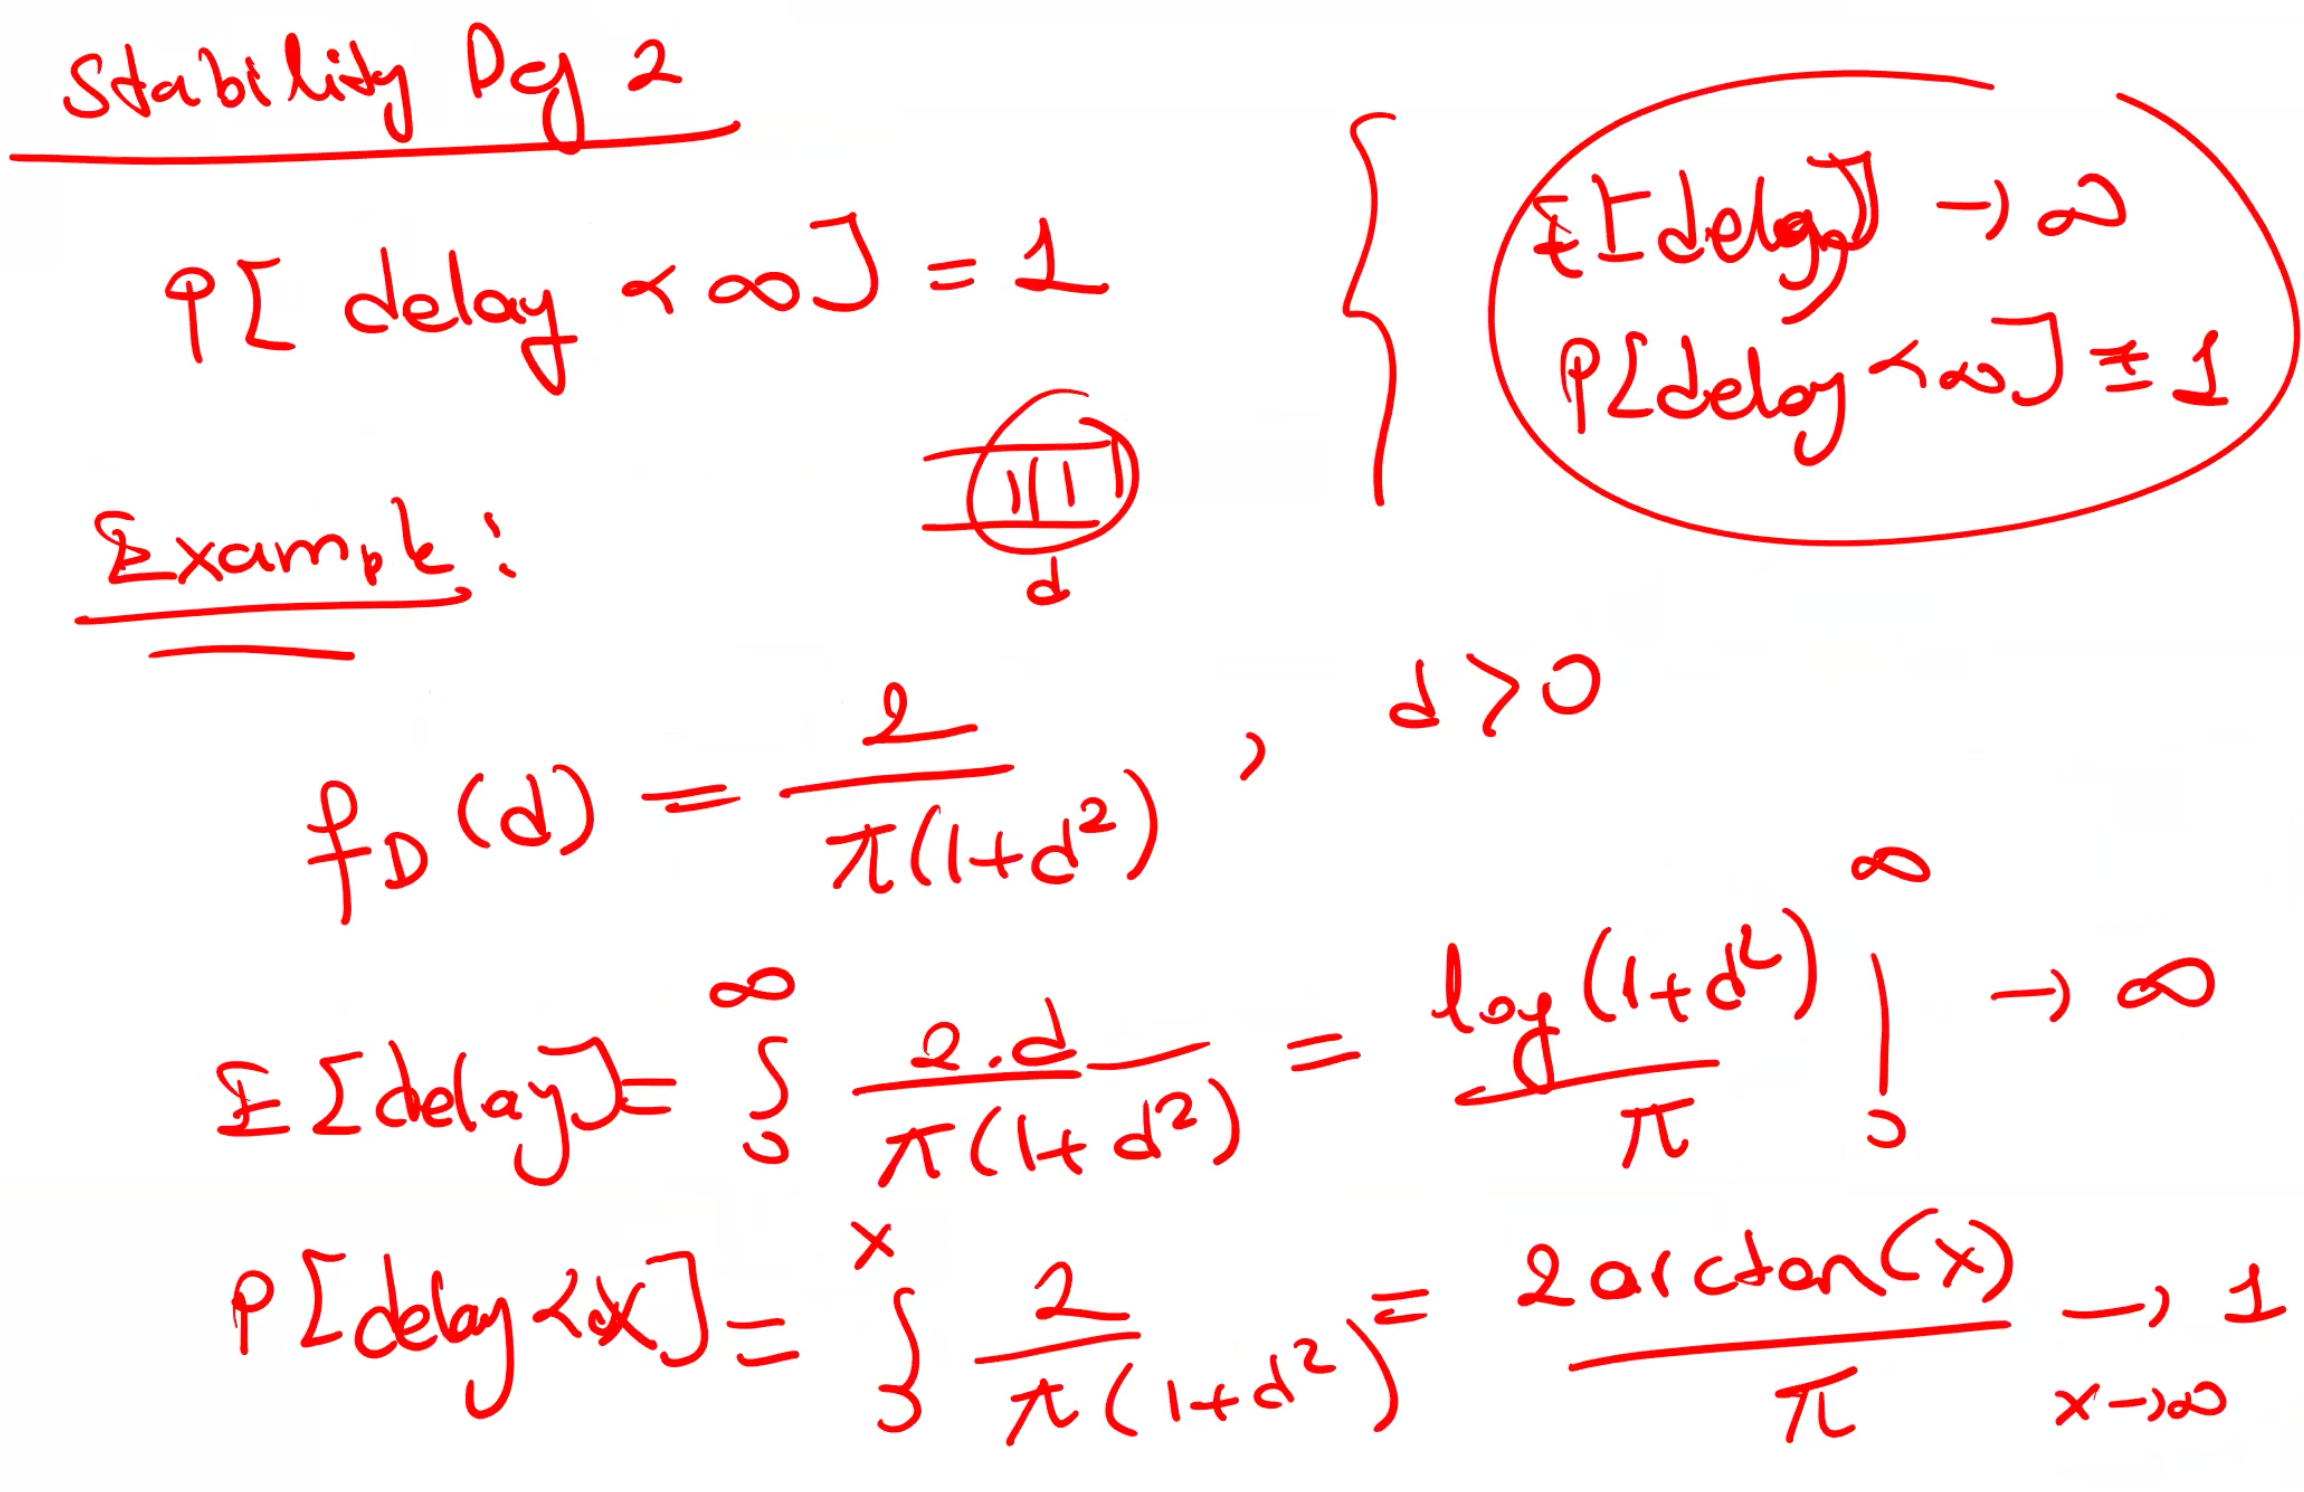 Stability Def 2
P[delay < ∞] = 1
E[delay] → ∞
P[delay < ∞] = 1
d
Example:
f_D(d) = 2 / π(1+d²) , d > 0
E[delay] = ∫₀^∞ 2.d / π(1+d²) = log(1+d²) / π |₀^∞ → ∞
P[delay < x] = ∫₀^x 2 / π(1+d²) = 2 arctan(x) / π → 1
x → ∞